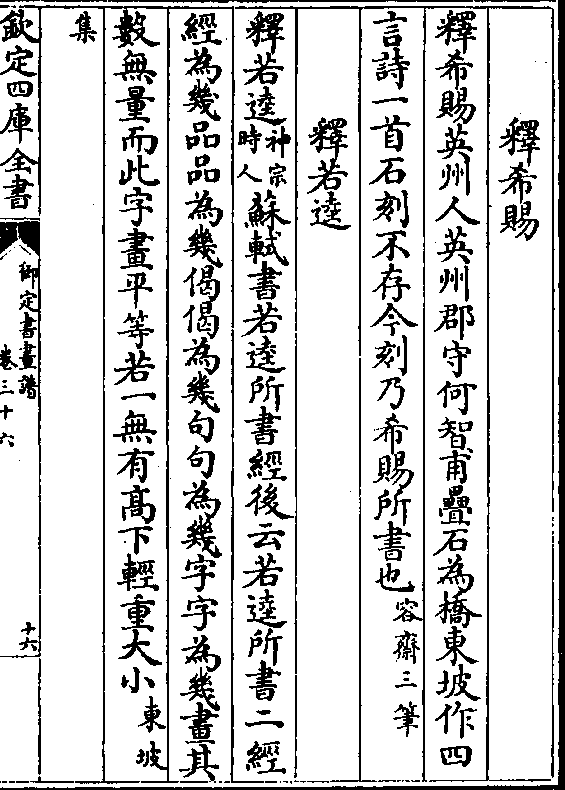 釋希賜
釋希賜英州人英州郡守何智甫疊石為橋東坡作四
言詩一首石刻不存今刻乃希賜所書也容齋三筆
釋若逵
釋若逵神宗時人蘇軾書若逵所書經後云若逵所書二經
經為幾品品為幾偈偈為幾句句為幾字字為幾畫其
數無量而此字畫平等若一無有高下輕重大小東坡
集
欽定四庫全書
御定書畫譜
卷三十六
十六